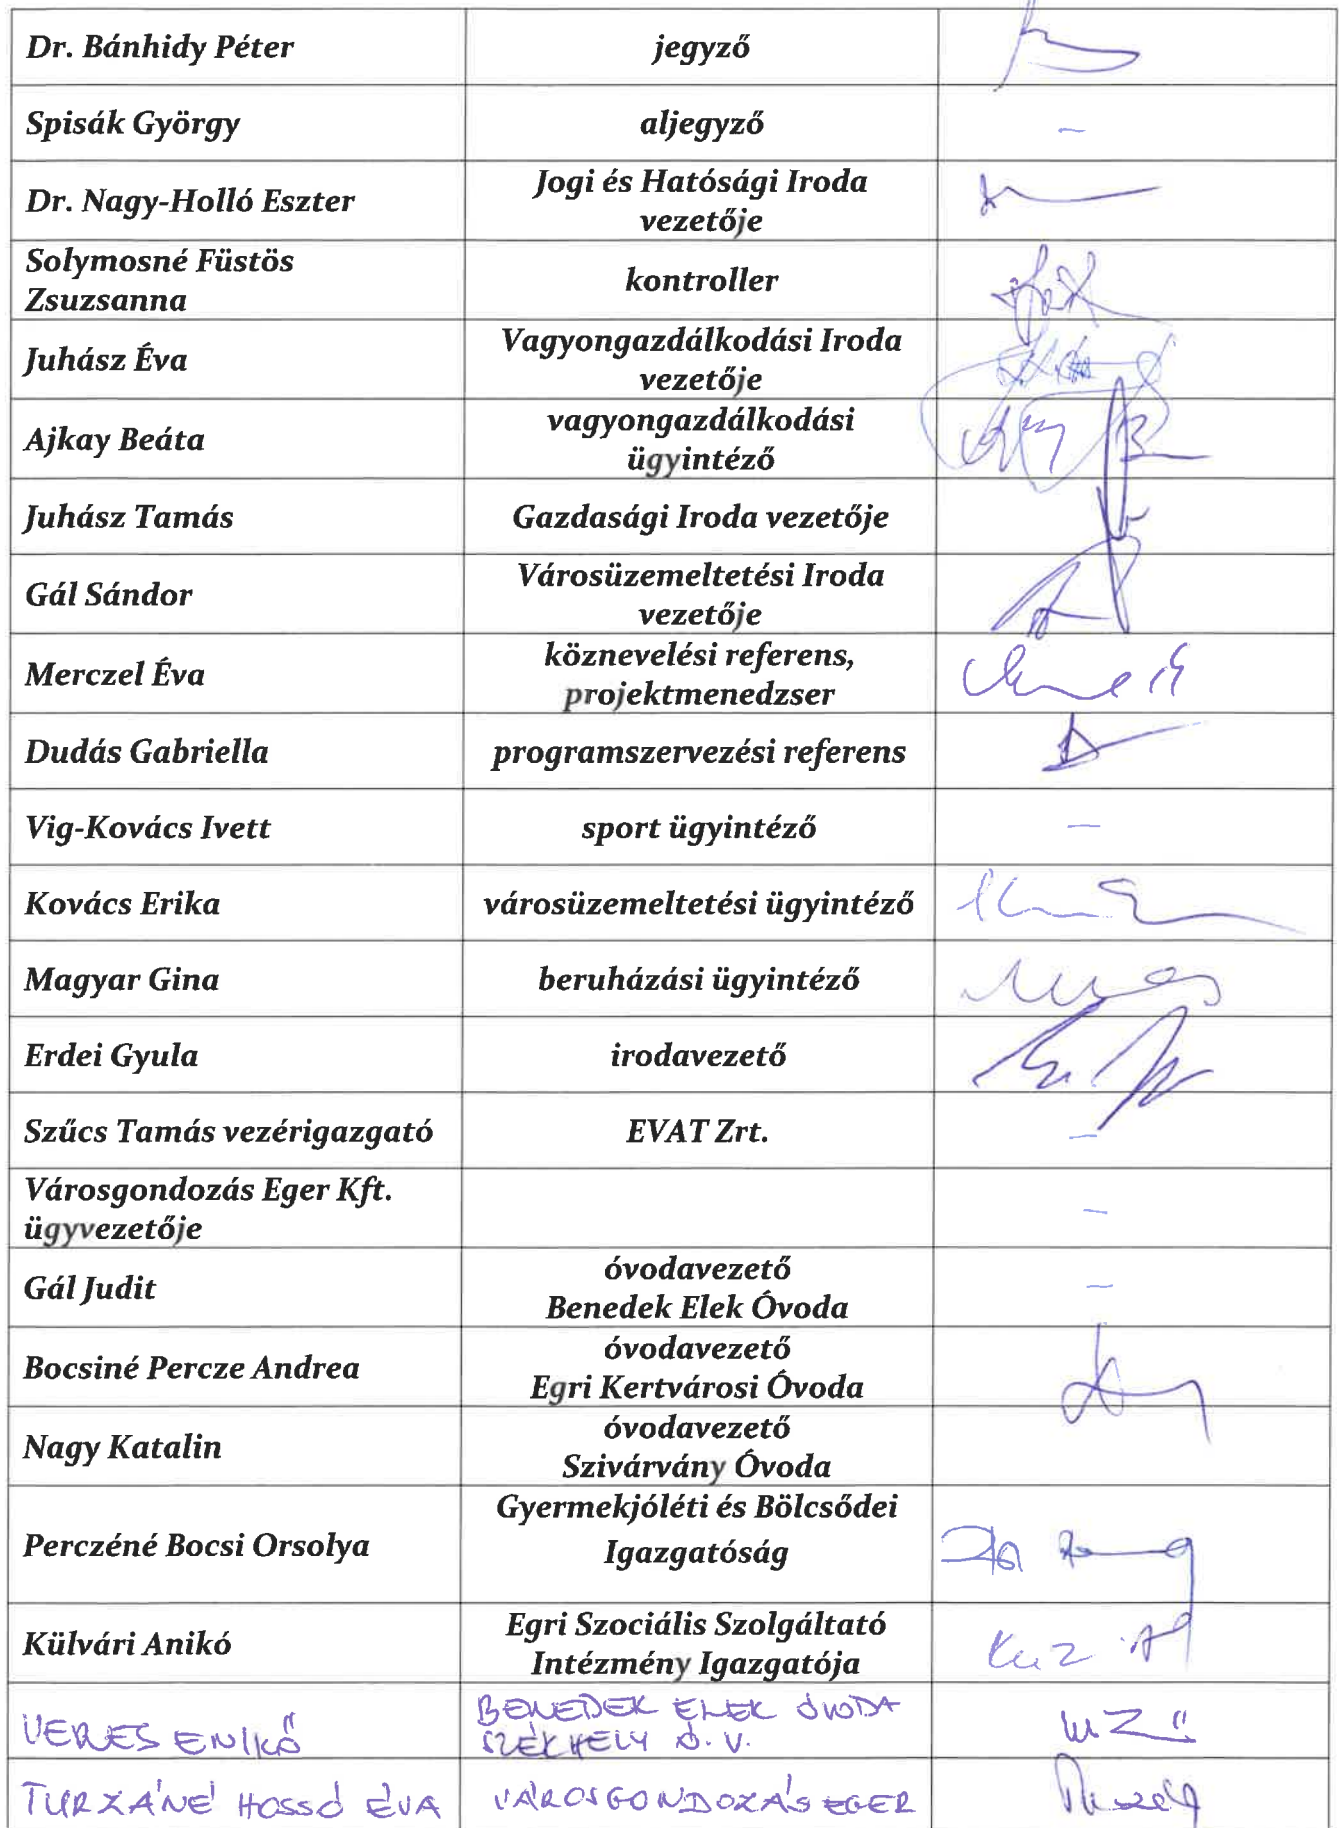 Dr. Bánhidy Péter jegyző
Spisák György aljegyző –
Dr. Nagy-Holló Eszter Jogi és Hatósági Iroda
vezetője
Solymosné Füstös
Zsuzsanna kontroller
Juhász Éva Vagyongazdálkodási Iroda
vezetője
Ajkay Beáta vagyongazdálkodási
ügyintéző
Juhász Tamás Gazdasági Iroda vezetője
Gál Sándor Városüzemeltetési Iroda
vezetője
Merczel Éva köznevelési referens,
projektmenedzser
Dudás Gabriella programszervezési referens
Vig-Kovács Ivett sport ügyintéző –
Kovács Erika városüzemeltetési ügyintéző
Magyar Gina beruházási ügyintéző
Erdei Gyula irodavezető
Szűcs Tamás vezérigazgató EVAT Zrt. –
Városgondozás Eger Kft.
ügyvezetője –
Gál Judit óvodavezető
Benedek Elek Óvoda –
Bocsiné Percze Andrea óvodavezető
Egri Kertvárosi Óvoda
Nagy Katalin óvodavezető
Szivárvány Óvoda
Perczéné Bocsi Orsolya Gyermekjóléti és Bölcsődei
Igazgatóság
Külvári Anikó Egri Szociális Szolgáltató
Intézmény Igazgatója
VERES ENIKŐ BENEDEK ELEK ÓVODA
SZÉKHELY Ó. V.
TURZÁNÉ HOSSÓ ÉVA VÁROSGONDOZÁS EGER